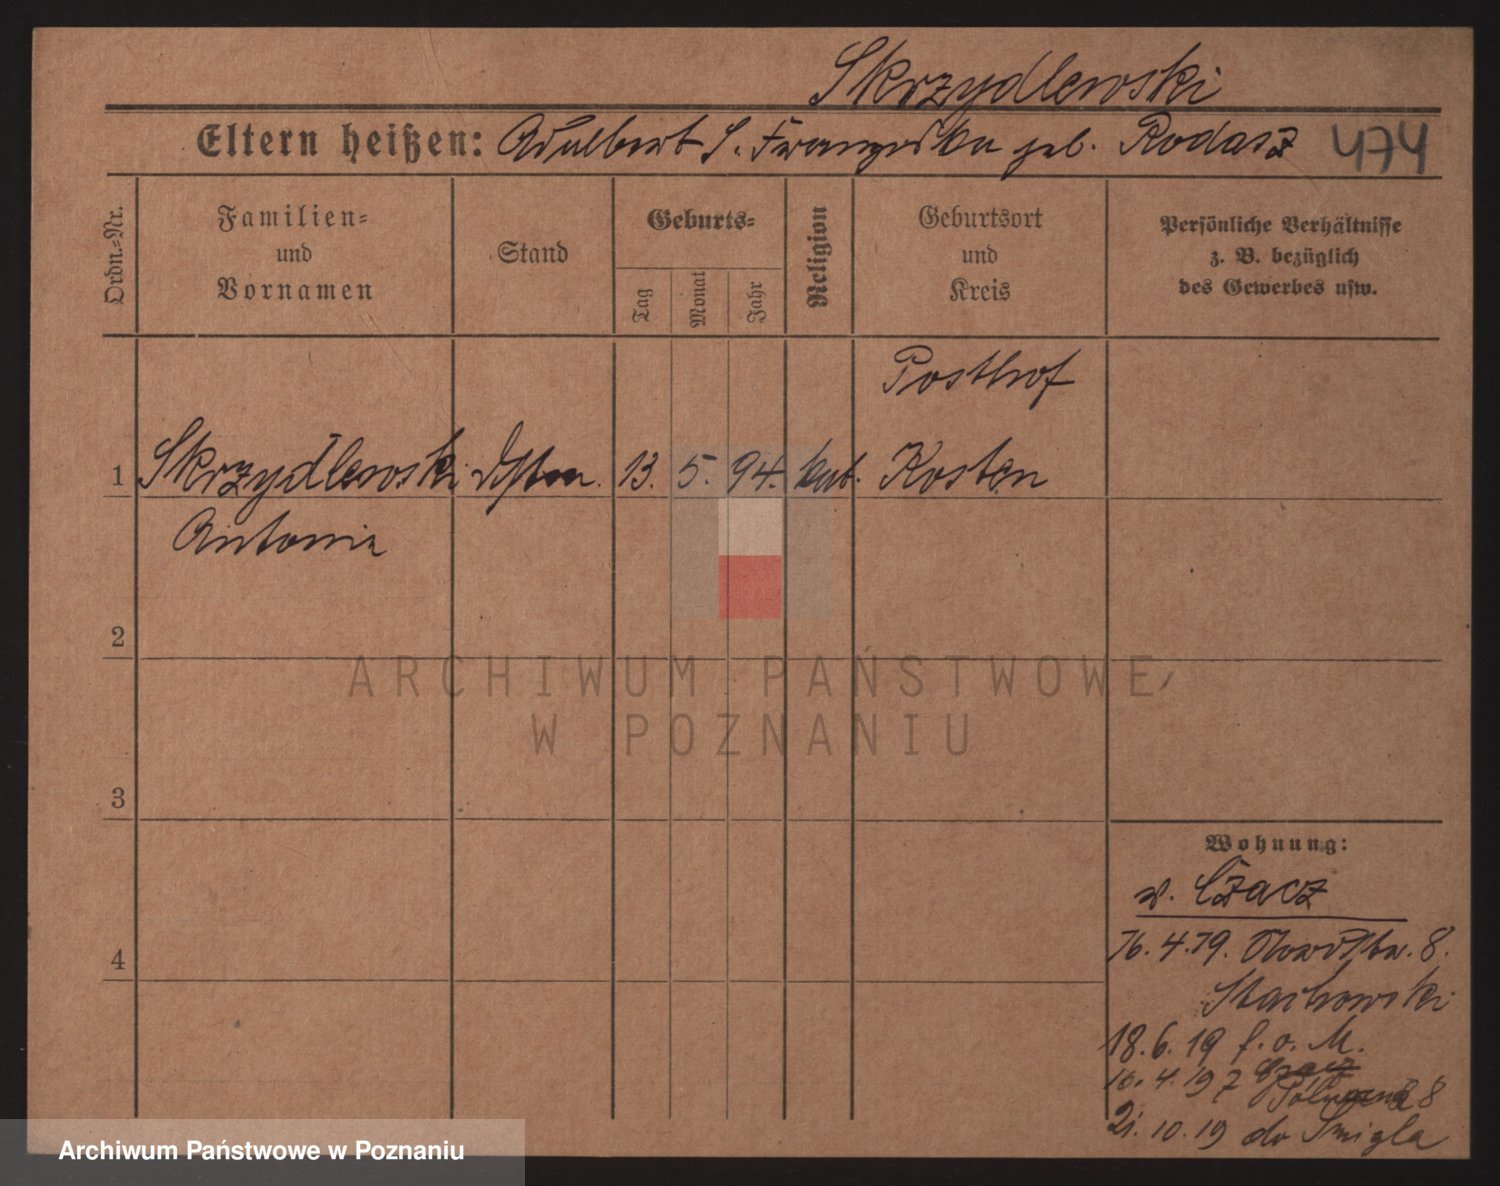 Skrzydlewski
Eltern heißen: Adalbert S. Franziska geb. Rodasz 474
Ordn.-Nr.
Familien-
und
Vornamen
Stand
Geburts-
Tag
Monat
Jahr
Religion
Geburtsort
und
Kreis
Persönliche Verhältnisse
z. B. bezüglich
des Gewerbes usw.
Posthof
1 Skrzydlewski 13. 5. 94. kat. Kosten
Antonie
2
3
4
Wohnung:
v. Czacz
16. 4. 19. 8.
Stachowski
18. 6. 19 f. o. M.
16. 4. 19 z Czacz
Półwiejska 8
21. 10. 19 do Śmigla
ARCHIWUM PAŃSTWOWE
W POZNANIU
Archiwum Państwowe w Poznaniu